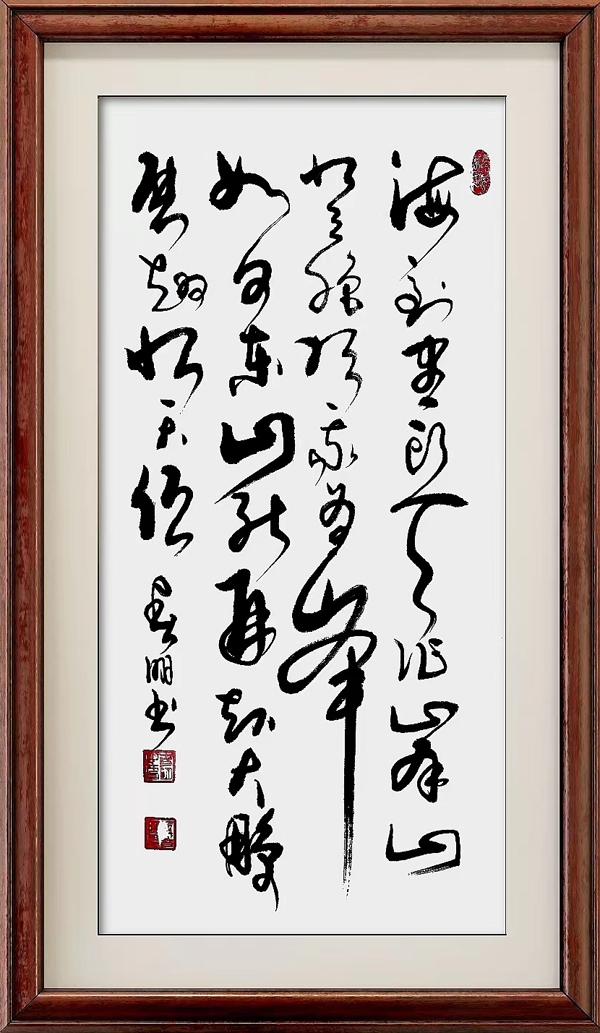 海到尽头天作岸山
登绝顶我为峰
如日东山能再起大鹏
展翅恨天低 春明书